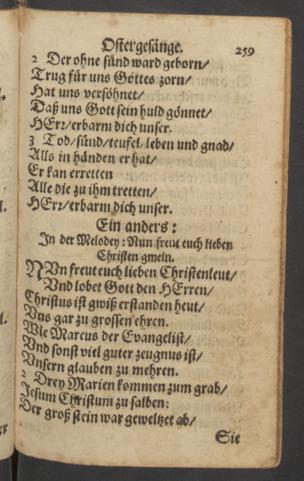 Ostergesänge. 259
2 Der ohne sünd ward geborn/
Trug für uns Gottes zorn/
Hat uns versöhnet/
Daß uns Gott sein huld gönnet/
HErr/ erbarm dich unser.
3 Tod/ sünd/ teufel/ leben und gnad/
Alls in händen er hat/
Er kan erretten
Alle die zu ihm tretten/
HErr/ erbarm dich unser.
Ein anders:
In der Melodey: Nun freut euch lieben
Christen gmein.
NUn freut euch lieben Christenleut/
Und lobet Gott den HErren/
Christus ist gwiß erstanden heut/
Uns gar zu grossen ehren.
Wie Marcus der Evangelist/
Und sonst viel guter zeugnus ist/
Unsern glauben zu mehren.
2 Drey Marien kommen zum grab/
Jesum Christum zu salben:
Der groß stein war geweltzet ab/
Sie